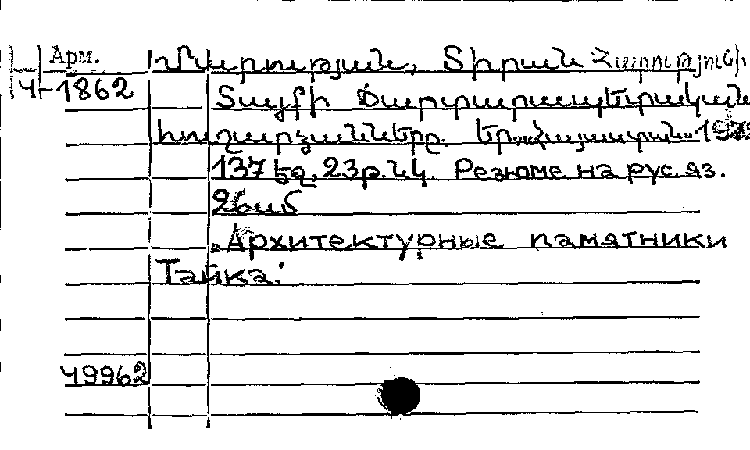 Арм.
Ч-1862
Մարության, Տիրան Հարությունի
Տայքի ճարտարապետական
հուշարձանները. Եր., Հայաստան, 19
137 էջ, 23 թ. նկ. Резюме на рус. яз.
„Архитектурные памятники
Тайка."
49962